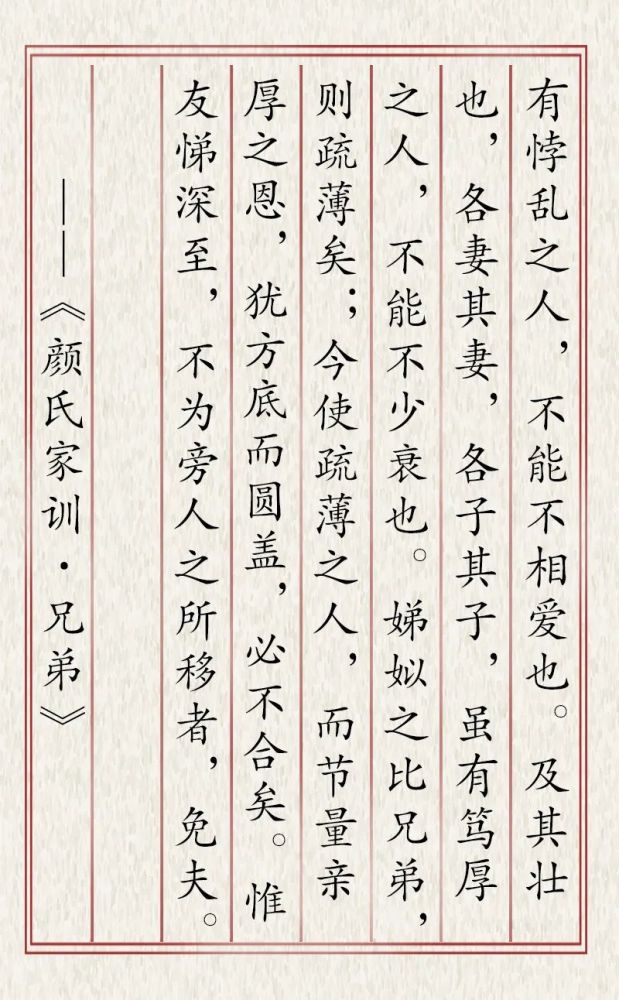 有悖乱之人，不能不相爱也。及其壮
也，各妻其妻，各子其子，虽有笃厚
之人，不能不少衰也。娣姒之比兄弟，
则疏薄矣；今使疏薄之人，而节量亲
厚之恩，犹方底而圆盖，必不合矣。惟
友悌深至，不为旁人之所移者，免夫。
——《颜氏家训·兄弟》